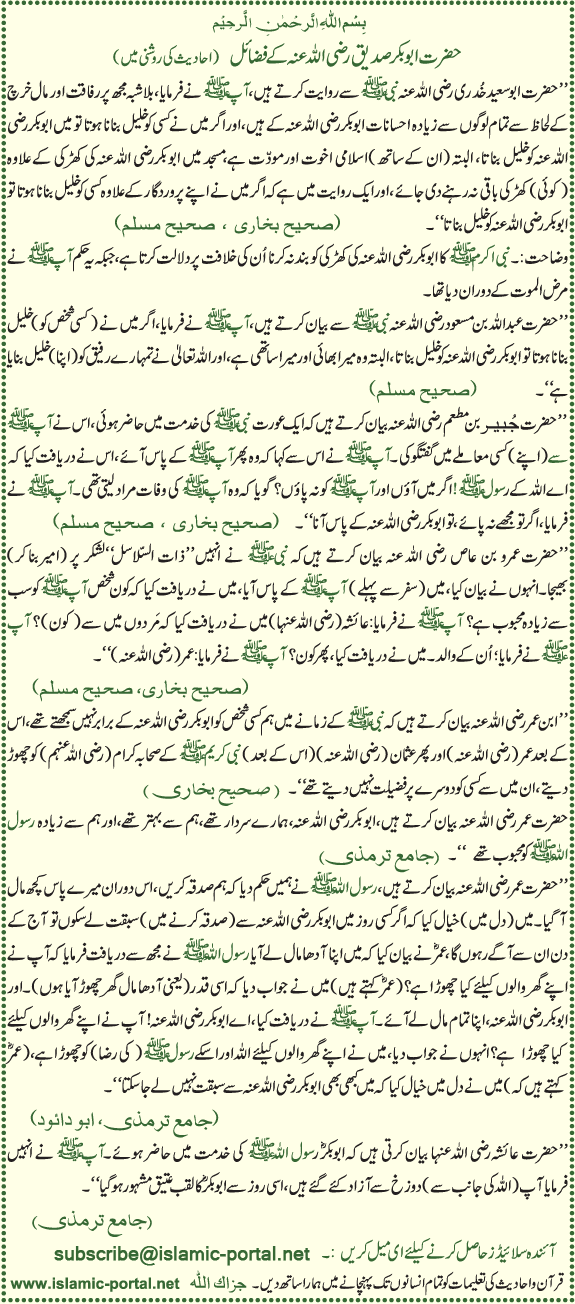 بِسْمِ اللهِ الرَّحْمٰنِ الرَّحِيْمِ
حضرت ابوبکر صدیق رضی اللہ عنہ کے فضائل (احادیث کی روشنی میں)
’’حضرت ابوسعید خُدری رضی اللہ عنہ نبی ﷺ سے روایت کرتے ہیں، آپ ﷺ نے فرمایا، بلاشبہ مجھ پر رفاقت اور مال خرچ
کے لحاظ سے تمام لوگوں سے زیادہ احسانات ابوبکر رضی اللہ عنہ کے ہیں، اور اگر میں نے کسی کو خلیل بنانا ہوتا تو میں ابوبکر رضی
اللہ عنہ کو خلیل بناتا، البتہ (ان کے ساتھ) اسلامی اخوت اور مودّت ہے، مسجد میں ابوبکر رضی اللہ عنہ کی کھڑکی کے علاوہ
(کوئی) کھڑکی باقی نہ رہنے دی جائے، اور ایک روایت میں ہے کہ اگر میں نے اپنے پروردگار کے علاوہ کسی کو خلیل بنانا ہوتا تو
ابوبکر رضی اللہ عنہ کو خلیل بناتا‘‘۔ (صحیح بخاری ، صحیح مسلم)
وضاحت:۔ نبی اکرم ﷺ کا ابوبکر رضی اللہ عنہ کی کھڑکی کو بند نہ کرنا اُن کی خلافت پر دلالت کرتا ہے، جبکہ یہ حکم آپ ﷺ نے
مرض الموت کے دوران دیا تھا۔
’’حضرت عبداللہ بن مسعود رضی اللہ عنہ نبی ﷺ سے بیان کرتے ہیں، آپ ﷺ نے فرمایا، اگر میں نے (کسی شخص کو) خلیل
بنانا ہوتا تو ابوبکر رضی اللہ عنہ کو خلیل بناتا، البتہ وہ میرا بھائی اور میرا ساتھی ہے، اور اللہ تعالیٰ نے تمہارے رفیق کو (اپنا) خلیل بنایا
ہے‘‘۔ (صحیح مسلم)
’’حضرت جُبیر بن مطعم رضی اللہ عنہ بیان کرتے ہیں کہ ایک عورت نبی ﷺ کی خدمت میں حاضر ہوئی، اس نے آپ ﷺ
سے (اپنے) کسی معاملے میں گفتگو کی۔ آپ ﷺ نے اس سے کہا کہ وہ پھر آپ ﷺ کے پاس آئے، اس نے دریافت کیا کہ
اے اللہ کے رسول ﷺ! اگر میں آؤں اور آپ ﷺ کو نہ پاؤں؟ گویا کہ وہ آپ ﷺ کی وفات مراد لیتی تھی۔ آپ ﷺ نے
فرمایا، اگر تو مجھے نہ پائے، تو ابوبکر رضی اللہ عنہ کے پاس آنا‘‘۔ (صحیح بخاری ، صحیح مسلم)
’’حضرت عمرو بن عاص رضی اللہ عنہ بیان کرتے ہیں کہ نبی ﷺ نے انہیں ’’ذات السّلاسل‘‘ لشکر پر (امیر بنا کر)
بھیجا۔ انہوں نے بیان کیا، میں (سفر سے پہلے) آپ ﷺ کے پاس آیا، میں نے دریافت کیا کہ کون شخص آپ ﷺ کو سب
سے زیادہ محبوب ہے؟ آپ ﷺ نے فرمایا: عائشہ (رضی اللہ عنہا) میں نے دریافت کیا کہ مَردوں میں سے (کون)؟ آپ
ﷺ نے فرمایا؛ اُن کے والد۔ میں نے دریافت کیا، پھر کون؟ آپ ﷺ نے فرمایا: عمر (رضی اللہ عنہ)‘‘۔
(صحیح بخاری، صحیح مسلم)
’’ابن عمر رضی اللہ عنہ بیان کرتے ہیں کہ نبی ﷺ کے زمانے میں ہم کسی شخص کو ابوبکر رضی اللہ عنہ کے برابر نہیں سمجھتے تھے، اس
کے بعد عمر (رضی اللہ عنہ) اور پھر عثمان (رضی اللہ عنہ) (اس کے بعد) نبی کریم ﷺ کے صحابہ کرام (رضی اللہ عنہم) کو چھوڑ
دیتے، ان میں سے کسی کو دوسرے پر فضیلت نہیں دیتے تھے‘‘۔ (صحیح بخاری)
حضرت عمر رضی اللہ عنہ بیان کرتے ہیں، ابوبکر رضی اللہ عنہ، ہمارے سردار تھے، ہم سے بہتر تھے، اور ہم سے زیادہ رسول
اللہ ﷺ کو محبوب تھے ‘‘۔ (جامع ترمذی)
’’حضرت عمر رضی اللہ عنہ بیان کرتے ہیں، رسول اللہ ﷺ نے ہمیں حکم دیا کہ ہم صدقہ کریں، اس دوران میرے پاس کچھ مال
آ گیا۔ میں (دل میں) خیال کیا کہ اگر کسی روز میں ابوبکر رضی اللہ عنہ سے (صدقہ کرنے میں) سبقت لے سکوں تو آج کے
دن ان سے آگے رہوں گا، عمرؓ نے بیان کیا کہ میں اپنا آدھا مال لے آیا رسول اللہ ﷺ نے مجھ سے دریافت فرمایا کہ آپ نے
اپنے گھر والوں کیلئے کیا چھوڑا ہے؟ (عمرؓ کہتے ہیں) میں نے جواب دیا کہ اسی قدر (یعنی آدھا مال گھر چھوڑ آیا ہوں)۔ اور
ابوبکر رضی اللہ عنہ، اپنا تمام مال لے آئے۔ آپ ﷺ نے دریافت کیا، اے ابوبکر رضی اللہ عنہ! آپ نے اپنے گھر والوں کیلئے
کیا چھوڑا ہے؟ انہوں نے جواب دیا، میں نے اپنے گھر والوں کیلئے اللہ اور اسکے رسول ﷺ (کی رضا) کو چھوڑا ہے، (عمرؓ
کہتے ہیں کہ) میں نے دل میں خیال کیا کہ میں کبھی بھی ابوبکر رضی اللہ عنہ سے سبقت نہیں لے جا سکتا‘‘۔
(جامع ترمذی، ابو دائود)
’’حضرت عائشہ رضی اللہ عنہا بیان کرتی ہیں کہ ابوبکرؓ رسول اللہ ﷺ کی خدمت میں حاضر ہوئے۔ آپ ﷺ نے انہیں
فرمایا آپ (اللہ کی جانب سے) دوزخ سے آزاد کئے گئے ہیں، اسی روز سے ابوبکرؓ کا لقب عتیق مشہور ہو گیا‘‘۔
(جامع ترمذی)
آئندہ سلائیڈز حاصل کرنے کیلئے ای میل کریں :۔ subscribe@islamic-portal.net
قرآن و احادیث کی تعلیمات کو تمام انسانوں تک پہنچانے میں ہمارا ساتھ دیں۔ جزاك الله www.islamic-portal.net